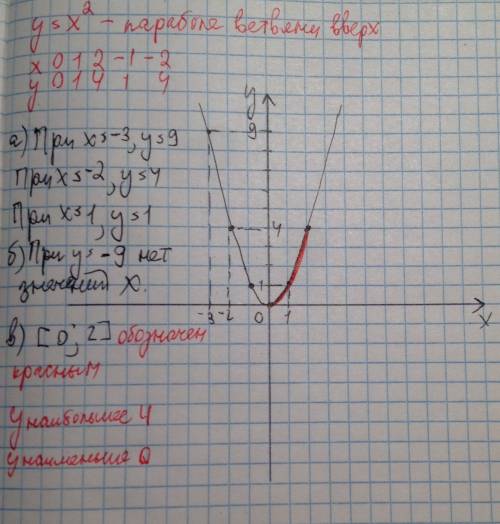 y = x² – парабола ветвями вверх
x 0 1 2 -1 -2
y 0 1 4 1 4
а) При x = -3, y = 9
При x = -2, y = 4
При x = 1, y = 1
б) При y = -9 нет
значений x.
в) [0; 2] обозначен
красным
y наибольшее 4
y наименьшее 0
y
9
4
1
-3 -2 0 1 x